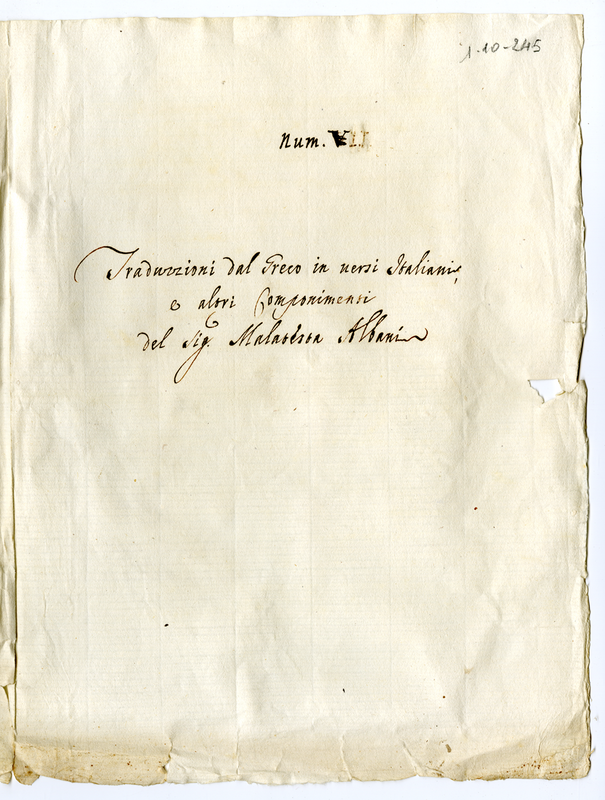 1-10-245
Num. VII
Traduzzioni dal Greco in versi Italiani,
e altri Componimenti
del Sig.r Malatesta Albani